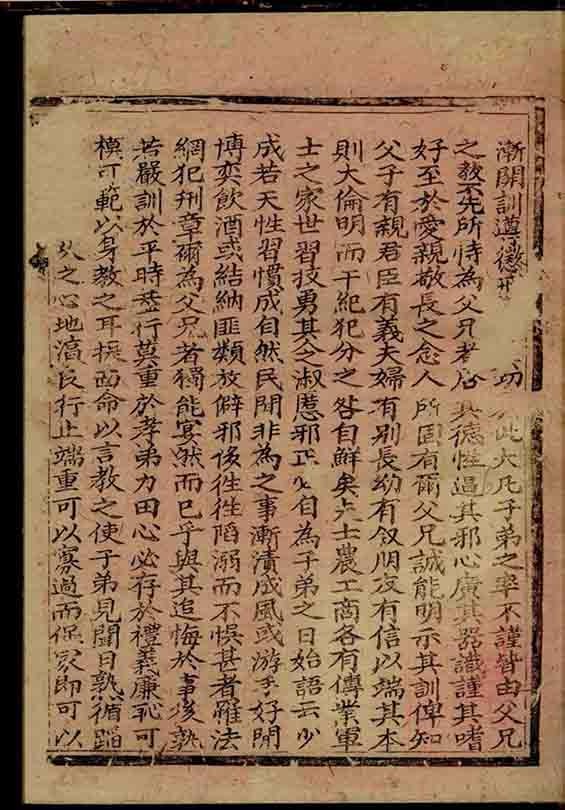 漸開訓遵懲 功 此大凡子弟之率不謹皆由父兄
之教不先所恃為父兄者啓其德性遏其邪心廣其器識謹其嗜
好至於愛親敬長之念人所固有爾父兄誠能明示其訓俾知
父子有親君臣有義夫婦有別長幼有叙朋友有信以端其本
則大倫明而干紀犯分之咎自鮮矣夫士農工商各有傳業軍
士之家世習技勇其人淑慝邪正必自為子弟之日始語云少
成若天性習慣成自然民間非為之事漸漬成風或游手好閒
博奕飲酒或結納匪類放僻邪侈徃徃陷溺而不悞甚者罹法
網犯刑章爾為父兄者獨能宴然而已乎與其追悔於事後孰
若嚴訓於平時葢行莫重於孝弟力田心必存於禮義廉恥可
模可範以身教之耳提面命以言教之使子弟見聞日熟循蹈
久之心地淳良行止端重可以寡過而保家即可以